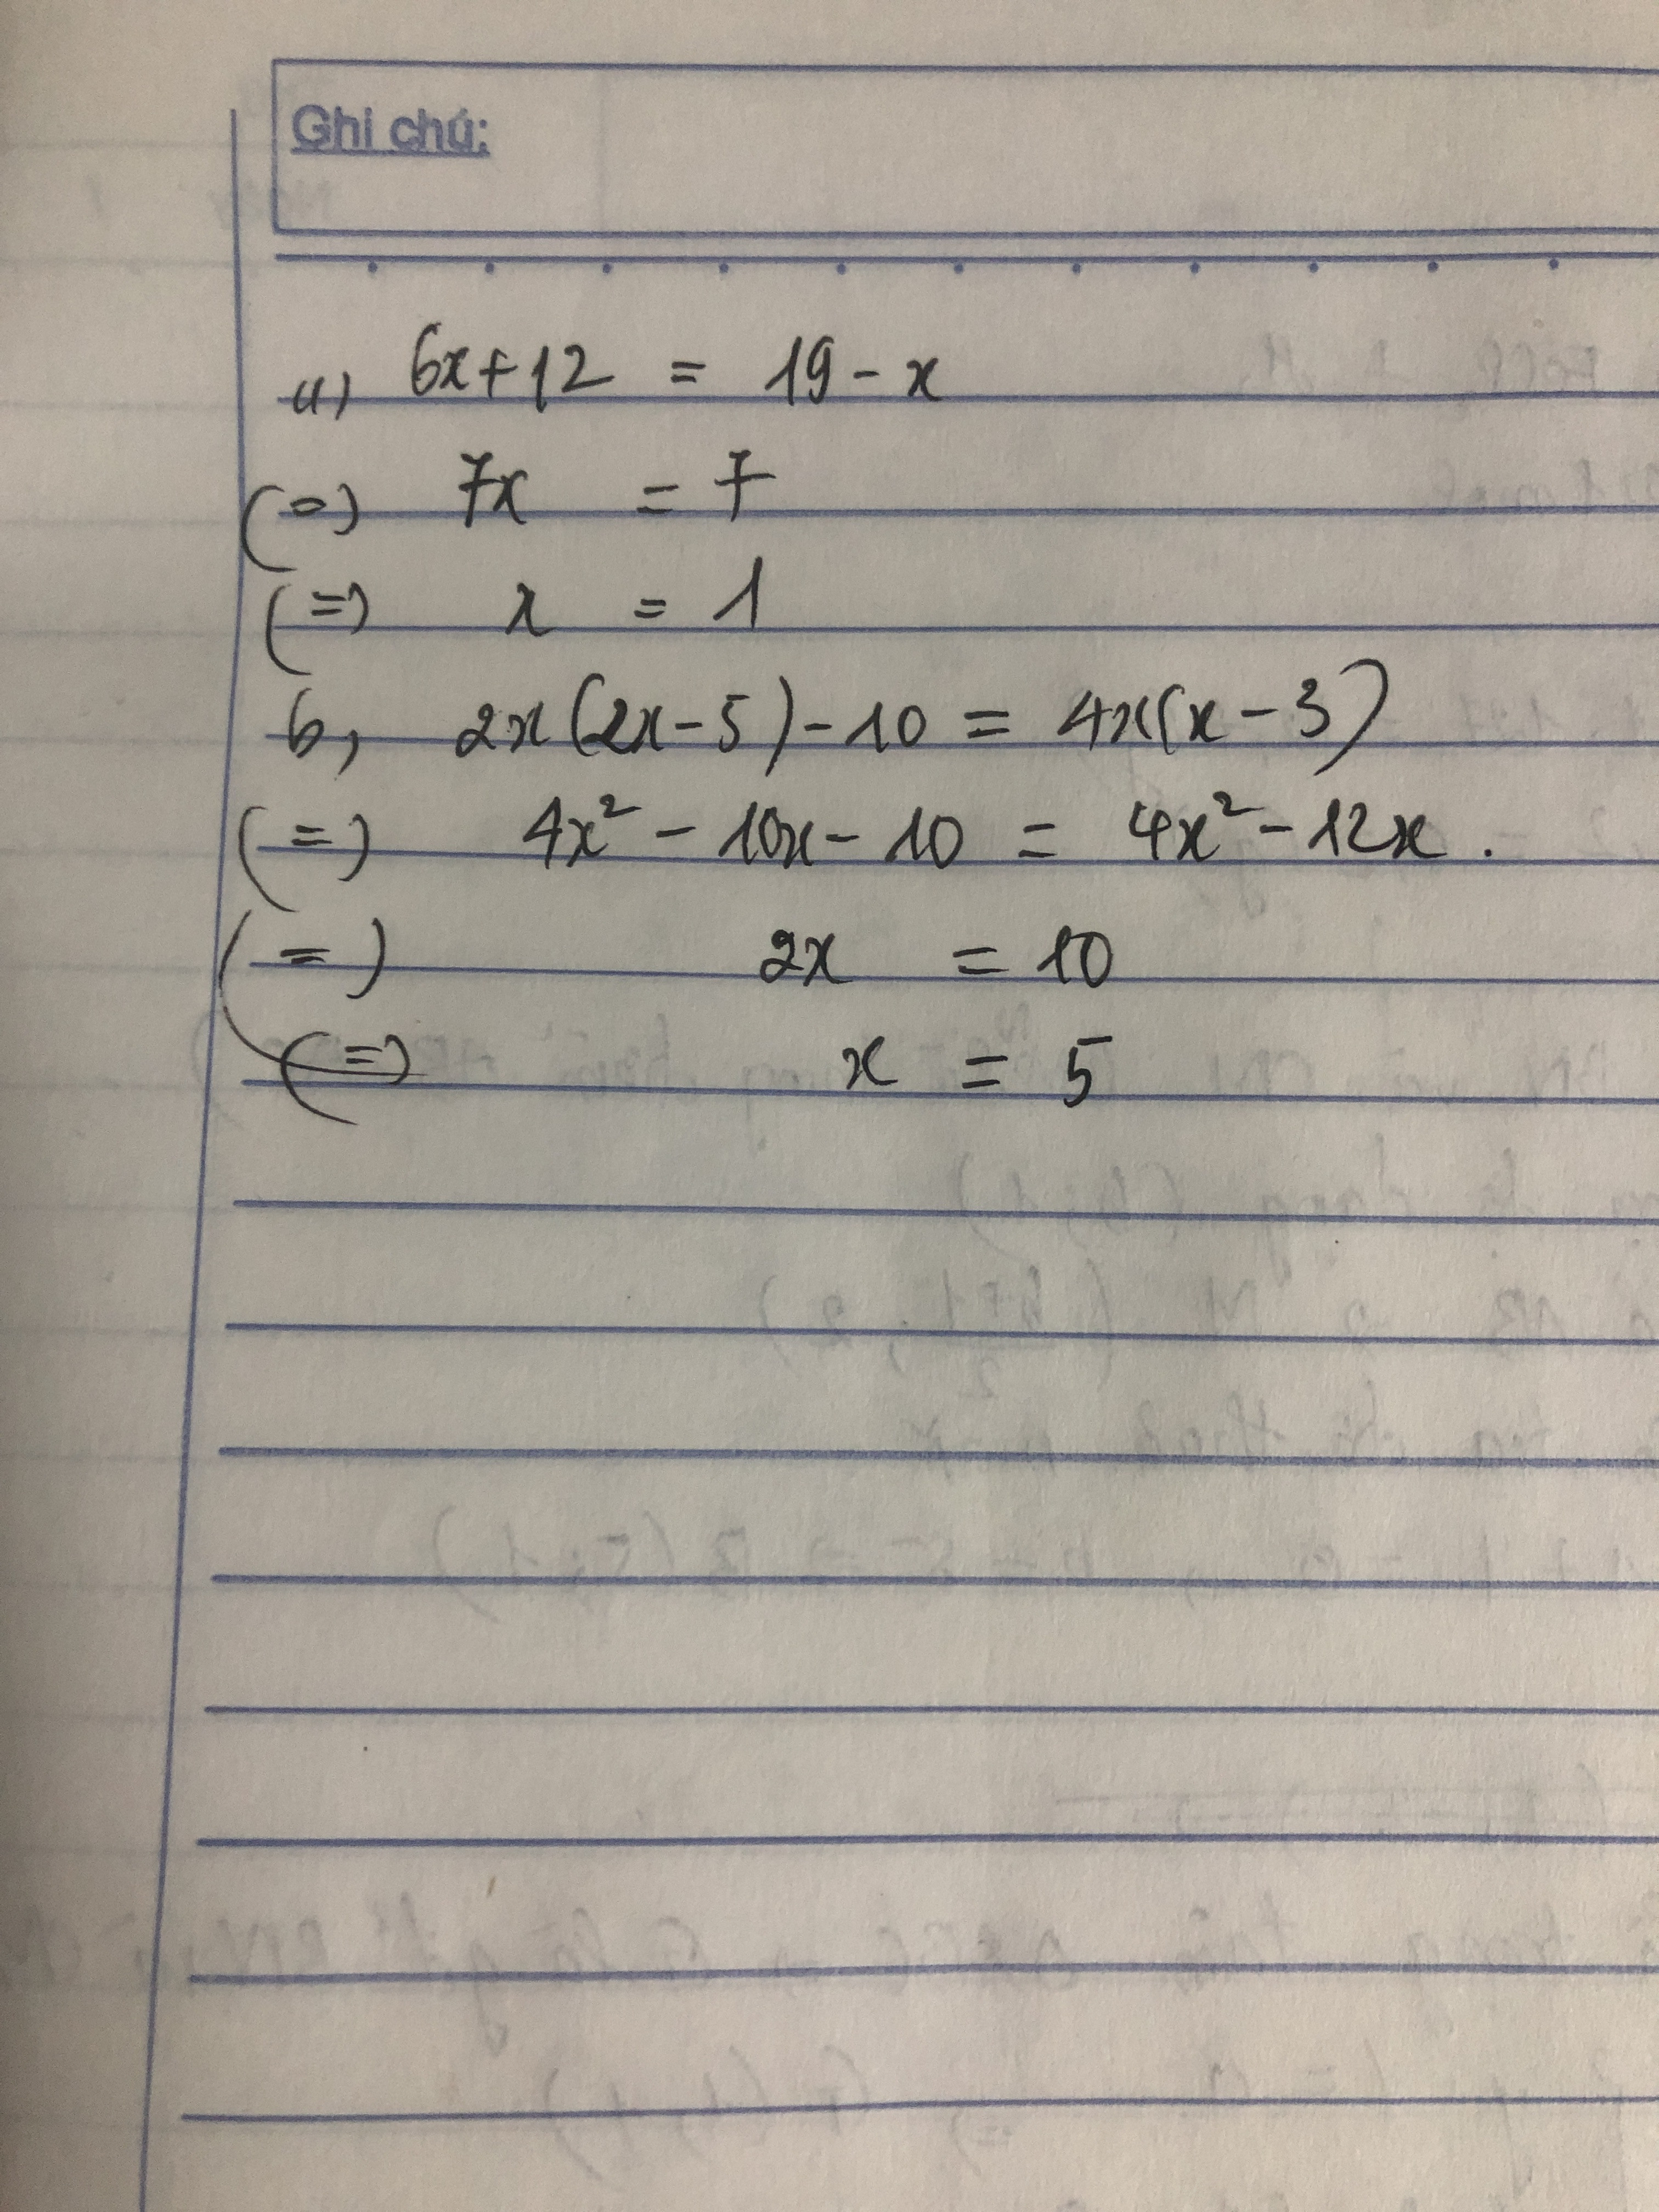 Ghi chú:
a) 6x+12 = 19 - x
(=) 7x = 7
(=) x = 1
b, 2x(2x-5)-10 = 4x(x-3)
(=) 4x² - 10x - 10 = 4x² - 12x .
(=) 2x = 10
(=) x = 5